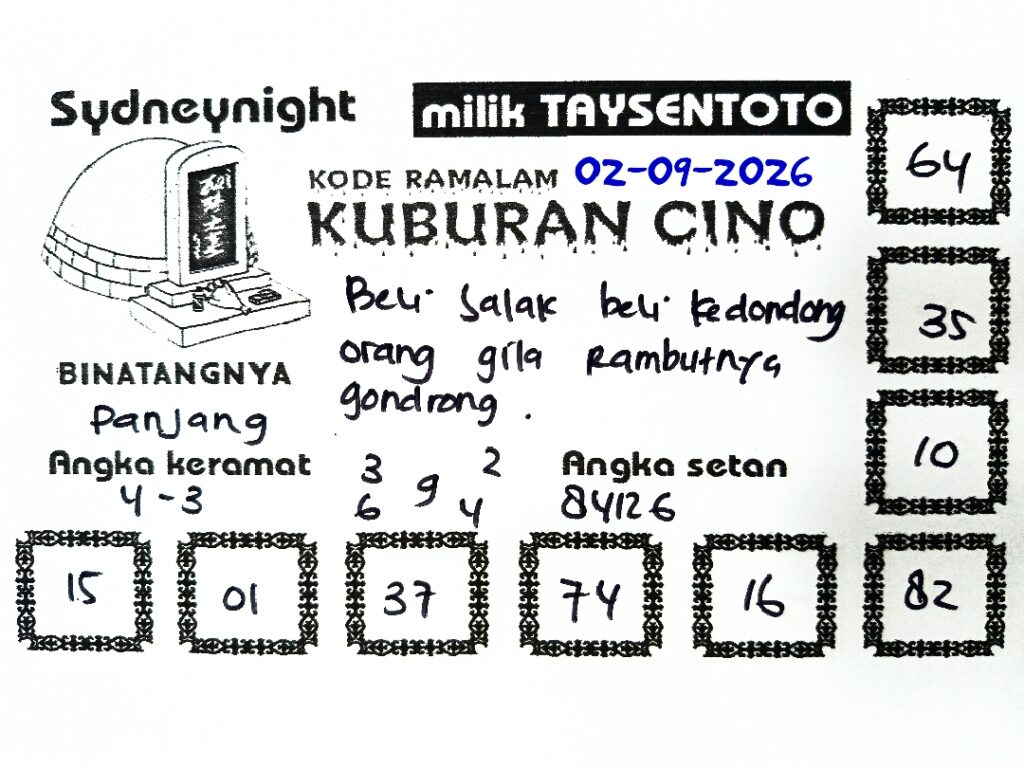 Sydneynight
milik TAYSENTOTO
KODE RAMALAM 02-09-2026
KUBURAN CINO
Beli salak beli kedondong
orang gila Rambutnya
gondrong .
BINATANGNYA
Panjang
Angka keramat
4 - 3
3 2
9
6 4
Angka setan
84126
64
35
10
15 01 37 74 16 82